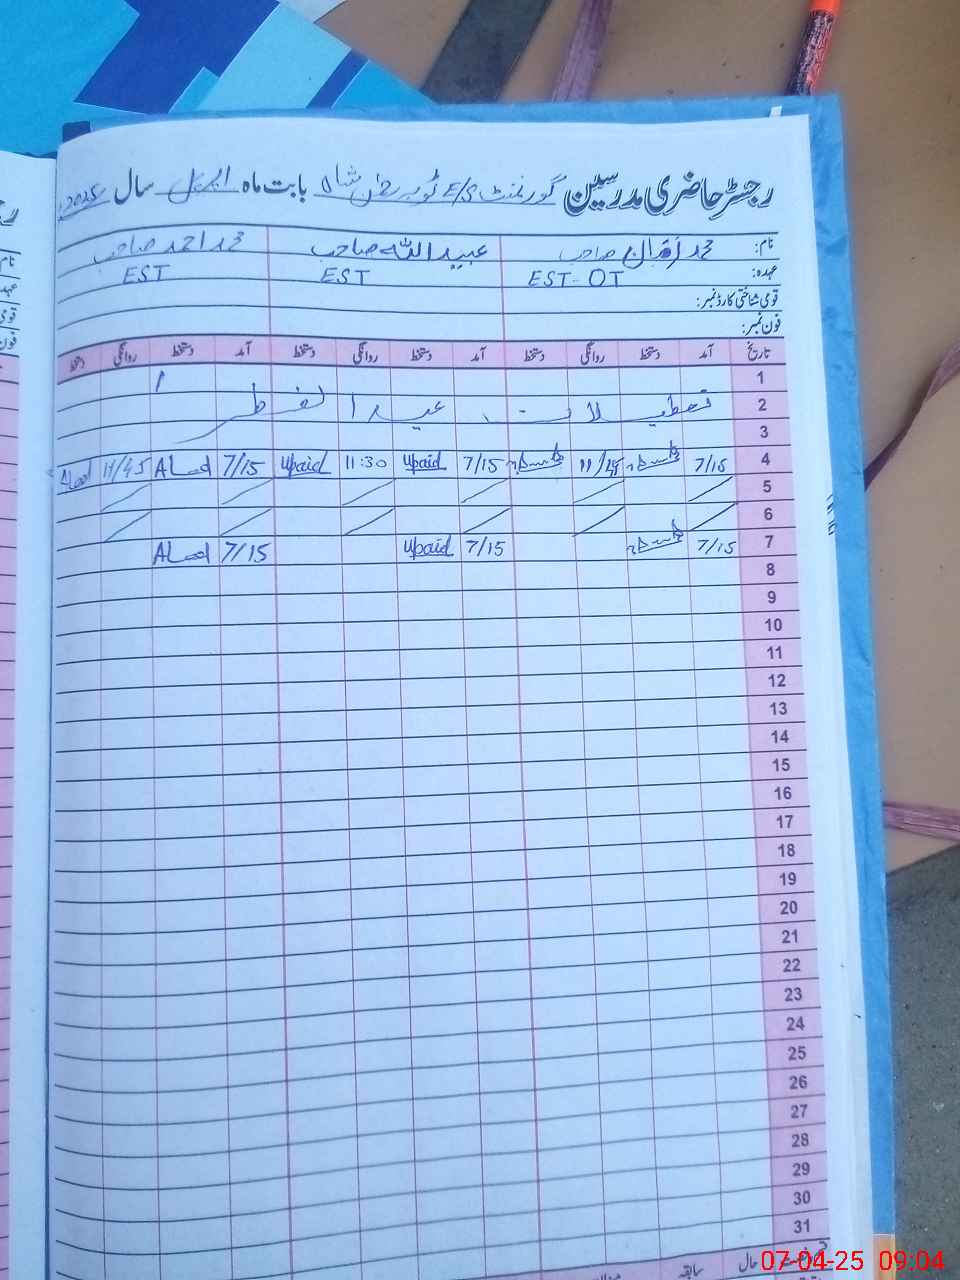 رجسٹر حاضری مدرسین گورنمنٹ E/S ٹوبہ شاہ بابت ماہ اپریل سال 2025
نام: محمد اقبال صاحب عبید اللہ صاحب محمد احمد صاحب
عہدہ: EST-OT EST EST
قومی شناختی کارڈ نمبر:
فون نمبر:
تاریخ آمد دستخط روانگی دستخط آمد دستخط روانگی دستخط آمد دستخط روانگی دستخط
1
2 تعطیلات عید الفطر
3
4 7/15 11/45 7/15 upaid 11:30 upaid 7/15 11/45
5
6
7 7/15 7/15 upaid 7/15
8
9
10
11
12
13
14
15
16
17
18
19
20
21
22
23
24
25
26
27
28
29
30
31
سابقہ حال
07-04-25 09:04